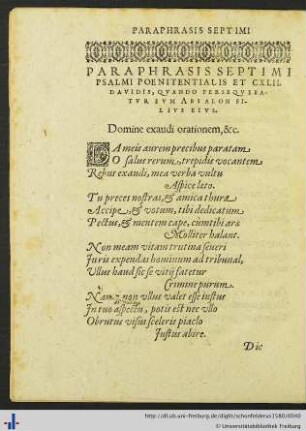 PARAPHRASIS SEPTIMI
PARAPHRASIS SEPTIMI
PSALMI POENITENTIALIS ET CXLII.
DAVIDIS, QVANDO PERSEQVEBA-
TVR EVM ABSALON FI-
LIVS EIVS.
Domine exaudi orationem, &c.
DA meis aurem precibus paratam
O salus rerum, trepide vocantem
Rebus exaudi, mea verba vultu
Aspice læto.
Tu preces nostras, & amica thura
Accipe, & votum, tibi dedicatum
Pectus, & mentem cape, cum tibi ars
Molliter halant.
Non meam vitam trutina severi
Iuris expendas hominum ad tribunal,
Vllus haud sic se vitij fatetur
Crimine purum.
Nam non vllus valet esse iustus
In tuo aspectu, potis est nec vllo
Obrutus visus sceleris piaclo
Iustus abire.
Dic
http://dl.ub.uni-freiburg.de/diglit/schonfelderus1580/0040
© Universitätsbibliothek Freiburg